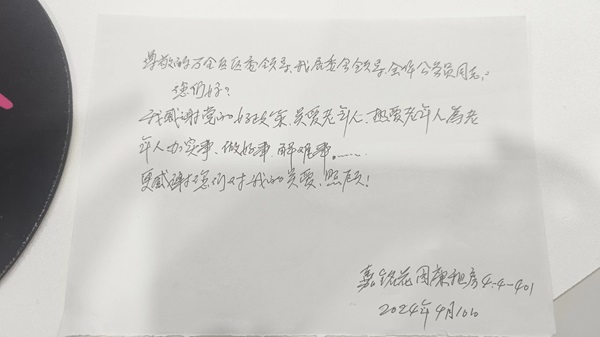 尊敬的万全区区委领导、我居委会领导、全体公务员同志：
您们好？
我感谢党的好政策、关爱老年人、热爱老年人为老
年人办实事、做好事、解难事。……
更感谢您们对我的关爱、照顾！
嘉铭花园廉租房4-4-401
2024年4月10日